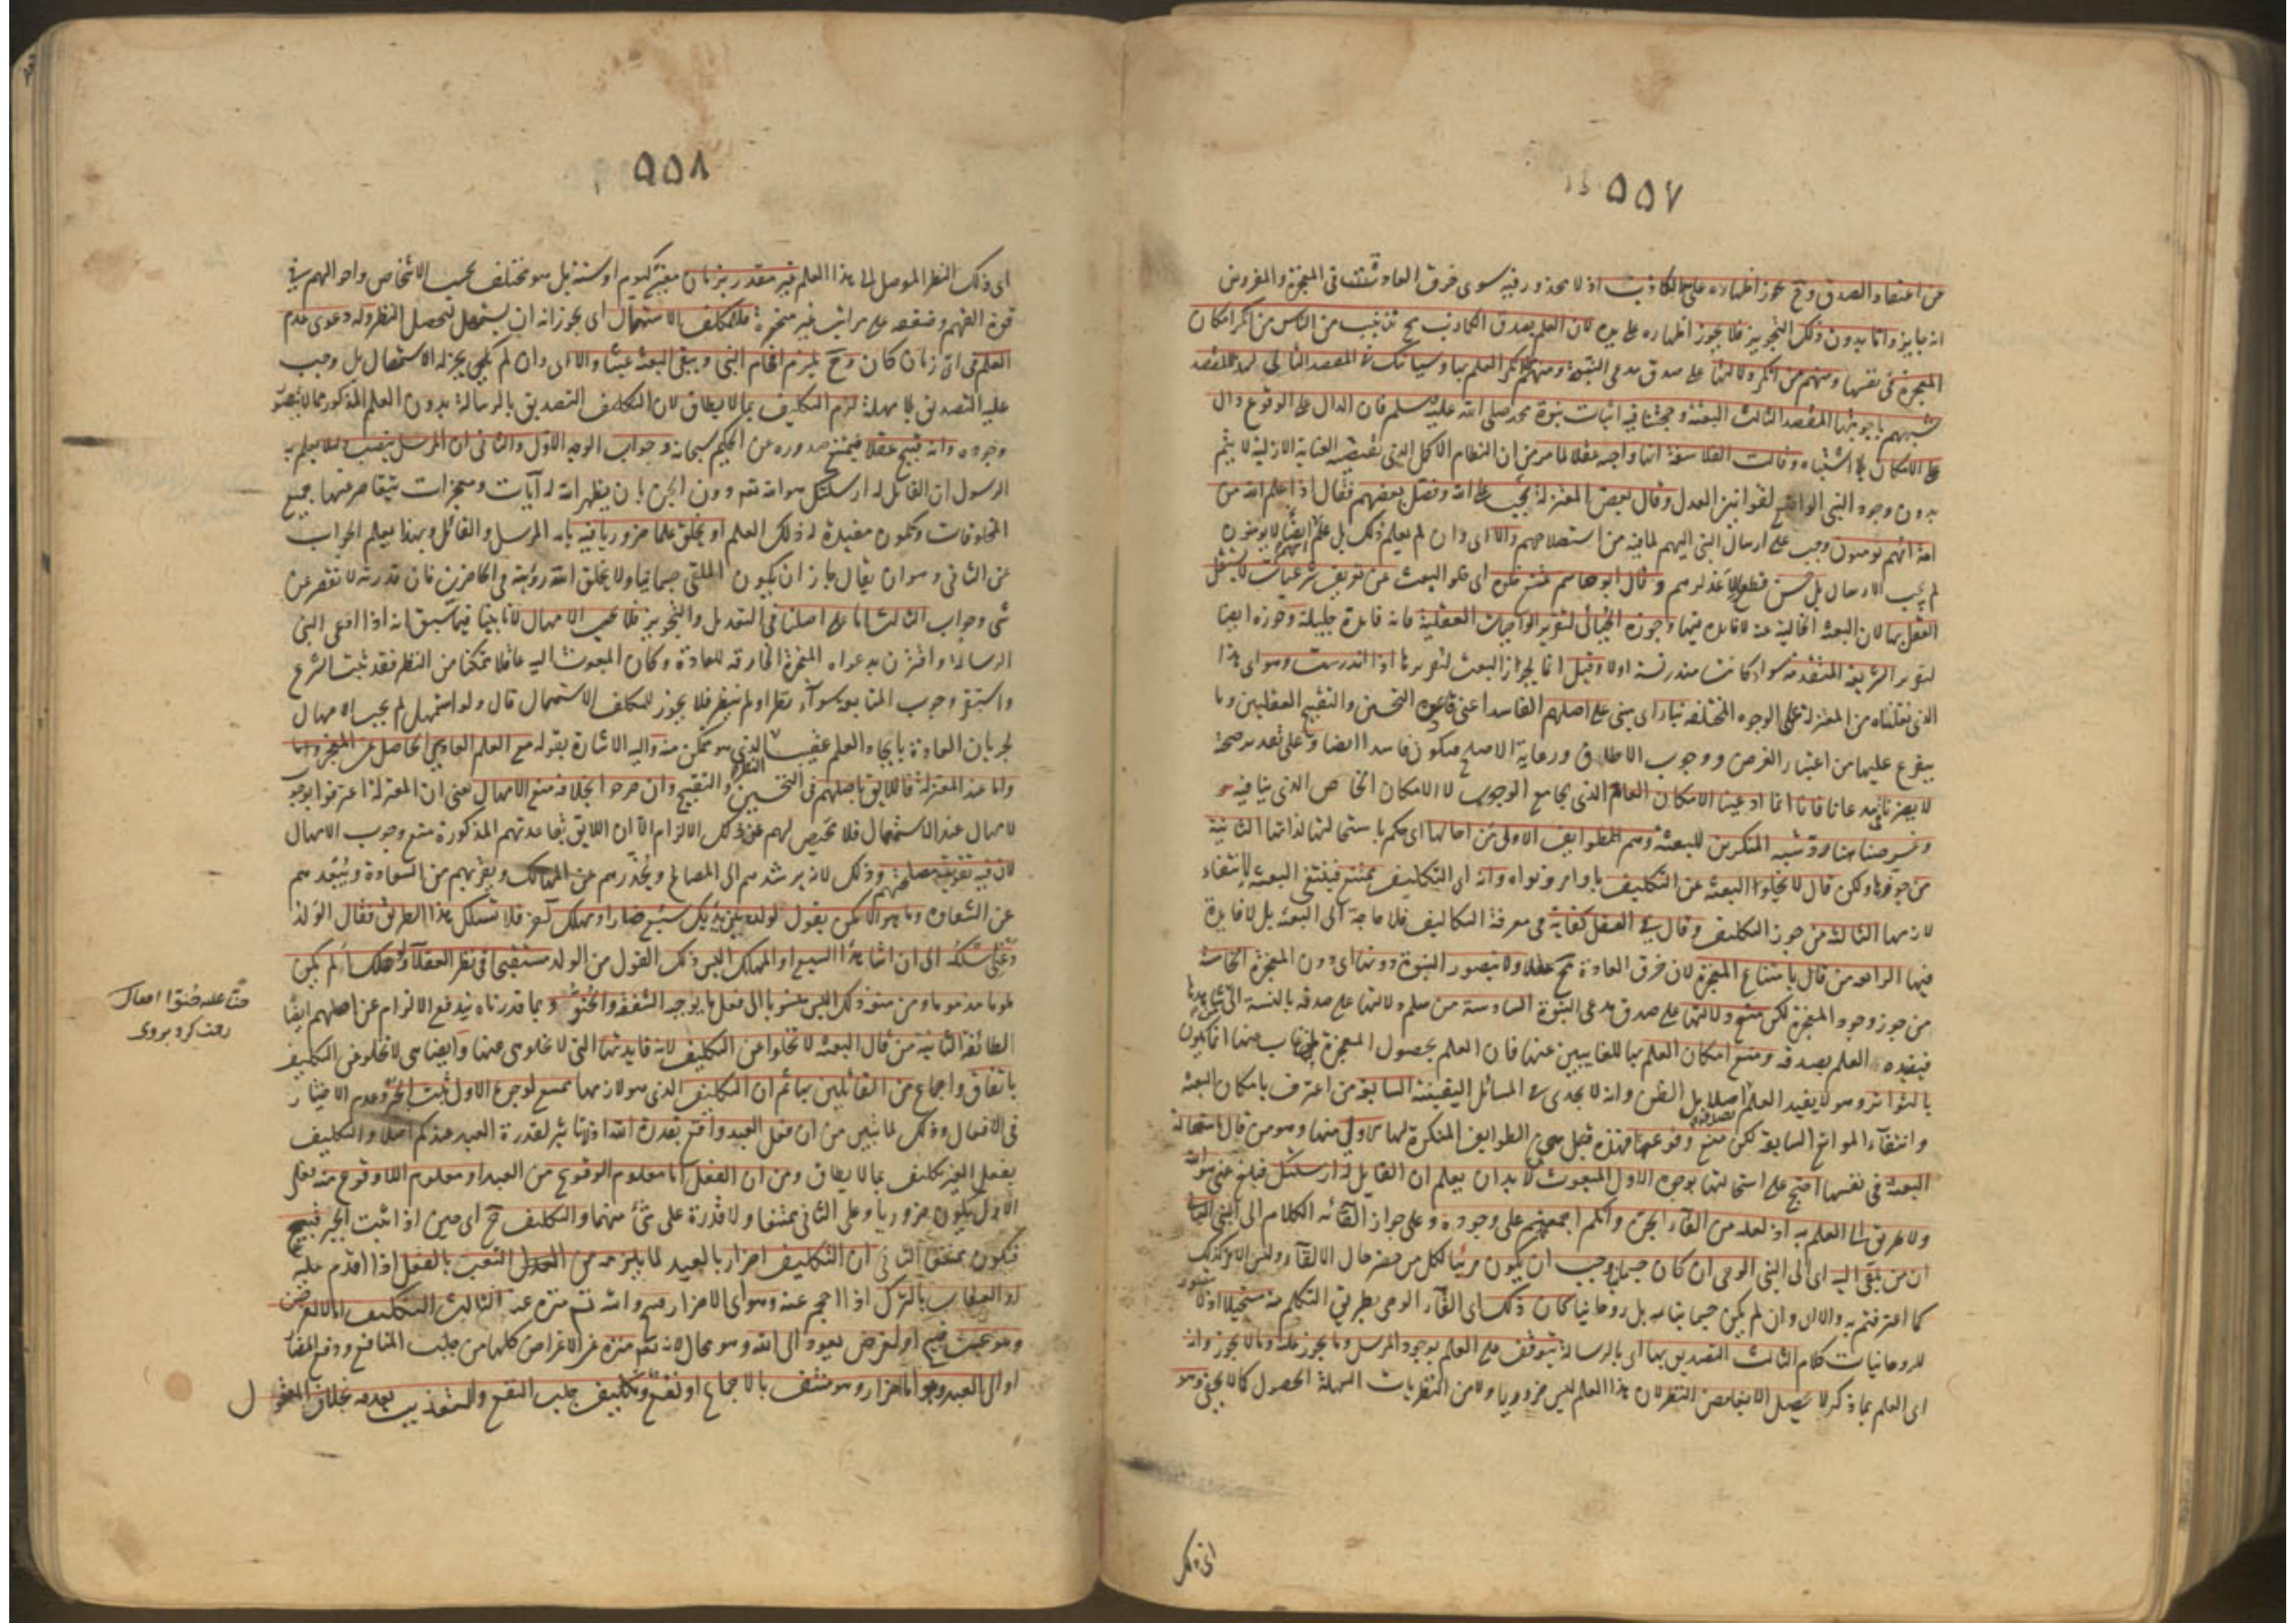 ٥٥٧
عن اعتقاد الصدق وح يجوز اظهاره على يد الكاذب اذ لا محذور فيه سوى خرق العادة في المعجزة والمفروض
انه جايز واما بدون ذلك التجويز فلا يجوز اظهاره على يده لان العلم بصدق الكاذب مح تذنيب من الناس من انكر امكان
المعجزة في نفسها ومنهم من انكر دلالتها على صدق مدعى النبوة ومنهم من انكر العلم بها وسياتيك في المقصد التالي لهذا المقصد
شبههم باجوبتها المقصد الثالث البعثة وحجتنا فيه اثبات نبوة محمد صلى الله عليه وسلم فان الدال على الوقوع دال
على الامكان بلا اشتباه وقالت الفلاسفة انها واجبة عقلا لما مر من ان النظام الاكمل الذي تقتضيه العناية الازلية لا يتم
بدون وجود النبي الواضع لقوانين العدل وقال بعض المعتزلة يجب على الله وفصل بعضهم فقال اذا علم الله من
امة انهم يومنون وجب عليه ارسال النبي اليهم لما فيه من استصلاحهم والا اى وان لم يعلم ذلك بل علم انهم لا يومنون
لم يجب الارسال بل حسن قطعا لاعذارهم وقال ابو هاشم يمتنع خلوه اى خلو البعث عن تعريف شرعيات لا يستقل
العقل بها لان البعثة الخالية عنه لا فائدة فيها وجوزه الجبائي لتقرير الواجبات العقلية فانه فائدة جليلة وجوزه ايضا
لتقرير الشريعة المتقدمة سواء كانت مندرسة اولا وقيل انما يجوز البعث لتقريرها اذا اندرست وهو اى هذا
الذي نقلناه من المعتزلة على الوجوه المختلفة بناء اى مبنى على اصلهم الفاسد اعنى قاعدة التحسين والتقبيح العقليين وما
يتفرع عليها من اعتبار الغرض ووجوب الالطاف ورعاية الاصلح فيكون فاسدا ايضا وعلى تقدير صحته
لا يضرنا في مدعانا فانا انما ادعينا الامكان العام الذي يجامع الوجوب لا الامكان الخاص الذي ينافيه
وغرضنا هنا رد شبه المنكرين للبعثة وهم طوايف الاولى من احالها اى حكم باستحالتها لذاتها الثانية
من جوزها ولكن قال لا يخلو البعثة عن التكليف باوامر ونواه وانه اى التكليف ممتنع فينتفي البعثة لانتفاء
لازمها الثالثة من جوز التكليف وقال في العقل كفاية في معرفة التكاليف فلا حاجة الى البعثة بل لا فايدة
فيها الرابعة من قال بامتناع المعجزة لان خرق العادة مح عقلا ولا يتصور النبوة دونها اى دون المعجزة الخامسة
من جوز وجود المعجزة لكن منع دلالتها على صدق مدعى النبوة السادسة من سلم دلالتها على صدقه بالنسبة الى من شاهدها
فيفيده العلم بصدقه ومنع امكان العلم بها للغايبين عنها فان العلم بحصول المعجزة لمن غاب عنها انما يكون
بالتواتر وهو لا يفيد العلم اصلا بل الظن وانه لا يجدى في المسائل اليقينية السابعة من اعترف بامكان البعثة
وانتفاء الموانع السابقة لكن منع وقوعها فهذه الطوايف المنكرة لها الاولى منها وهو من قال باستحالة
البعثة في نفسها احتج على استحالتها بوجوه الاول المبعوث لا بد ان يعلم ان القايل له ارسلتك فبلغ عنى هو الله
ولا طريق الى العلم به اذ لعله من القاء الجن وانكم اجمعتم على وجوده وعلى جواز القائه الكلام الى النبي الثاني
ان من يلقى اليه اى الى النبي الوحى ان كان جسمانيا وجب ان يكون مرئيا لكل من حضر حال الالقاء وليس الامر كذلك
كما اعترفتم به والا اى وان لم يكن جسمانيا بل روحانيا كان ذلك اى القاء الوحى بطريق التكلم منه مستحيلا اذ لا يتصور
للروحانيات كلام الثالث التصديق بها اى بالرسالة يتوقف على العلم بوجود المرسل وما يجوز عليه وما لا يجوز وانه
اى العلم بما ذكر لا يحصل الا بغامض النظر لان هذا العلم ليس ضروريا ولا من النظريات السهلة الحصول كما لا يخفى وهو
اى ذلك
٥٥٨
اى ذلك النظر الموصل الى هذا العلم غير مقدر بزمان معين كيوم او سنة بل هو مختلف بحسب الاشخاص واحوالهم في
قوة الفهم وضعفه على مراتب غير منحصرة فللمكلف الاستمهال اى يجوز له ان يستمهل لتحصيل النظر وله دعوى عدم
العلم في اى زمان كان وح يلزم افحام النبي ويبقى البعثة عبثا والا اى وان لم يجز له الاستمهال بل وجب
عليه التصديق بلا مهلة لزم التكليف بما لا يطاق لان التكليف التصديق بالرسالة بدون العلم المذكور مما لا يتصور
وجوده وانه قبيح عقلا فيمتنع صدوره عن الحكيم سبحانه وجواب الوجه الاول والثاني ان المرسل ينصب دليلا يعلم به
الرسول ان القائل له ارسلتك هو الله تعه دون الجن بان يظهر الله له آيات ومعجزات يتقاصر عنها جميع
المخلوقات وتكون مفيدة له ذلك العلم او يخلق علما ضروريا فيه بانه المرسل والقائل وبهذا يعلم الجواب
عن الثاني وهو ان يقال جاز ان يكون الملقى جسمانيا ولا يخلق الله رؤيته في الحاضرين فان قدرته لا تقصر عن
شى وجواب الثالث اما على اصلنا في التعديل والتجويز فلا يجب الامهال لانا بينا فيما سبق انه اذا ادعى النبي
الرسالة واقترن بدعواه المعجزة الخارقة للعادة وكان المبعوث اليه عاقلا متمكنا من النظر فقد ثبت الشرع
واستقر وجوب المتابعة سواء نظر اولم ينظر فلا يجوز للمكلف الاستمهال قال ولو استمهل لم يجب الامهال
لجريان العادة بايجاد العلم عقيب النظر الذي هو متمكن منه واليه الاشارة بقوله مع العلم العادي الحاصل عن المعجز واما
واما عند المعتزلة فاللايق باصلهم في التحسين والتقبيح وان صرحوا بخلافه منع الامهال يعنى ان المعتزلة اعترفوا بوجوب
لامهال عند الاستمهال فلا محيص لهم عن ذلك الالزام الا ان اللايق بقاعدتهم المذكورة منع وجوب الامهال
لان فيه تفويت مصلحتهم وذلك لانه يرشدهم الى المصالح ويحذرهم عن المهالك ويقربهم من السعادة ويبعدهم
عن الشقاوة وما هو الا كمن يقول لولده بين يديك سبع ضار او مهلك آخر فلا تسلك هذا الطريق فقال الولد
دعنى اسلكه الى ان اشاهد السبع او المهلك اليس ذلك القول من الولد مستقبحا في نظر العقلاء ولو هلك الم يكن
ملوما مذموما ومن منعه ذلك اليس منسوبا الى فعل ما يوجبه الشفقة والحنو وبما قررناه يندفع الالزام عن اصلهم ايضا
الطائفة الثانية من قال البعثة لا تخلوا عن التكليف لانه فايدتها التي لا تخلو هى عنها وايضا هى لا تخلو عن التكليف
باتفاق واجماع من القائلين بها ثم ان التكليف الذي هو لازمها ممتنع لوجوه الاول ثبت الجبر وعدم الاختيار
في الافعال وذلك لما تبين من ان فعل العبد واقع بقدرة الله اذ لا تاثير لقدرة العبد عندكم اصلا والتكليف
بفعل الغير تكليف بما لا يطاق ومن ان الفعل اما معلوم الوقوع من العبد او معلوم اللاوقوع منه فعلى
الاول يكون ضروريا وعلى الثاني ممتنعا ولا قدرة على شئ منهما والتكليف ح اى حين اذ ثبت الجبر قبيح
فيكون ممتنعا الثاني ان التكليف اضرار بالعبد لما يلزمه من التعب بالفعل اذا اقدم عليه
او العقاب بالترك اذا احجم عنه وهو اى الاضرار قبيح والله تعه منزه عنه الثالث التكليف اما لا لغرض
وهو عبث قبيح او لغرض يعود الى الله وهو محال لانه تعه منزه عن الاغراض كلها من جلب المنافع ودفع المضار
او الى العبد وهو اما اضرار وهو منتف بالاجماع او نفع وتكليف جلب النفع والتعذيب بعدمه خلاف المعقول
حنا عليه حنوا
رقت كرد بروى